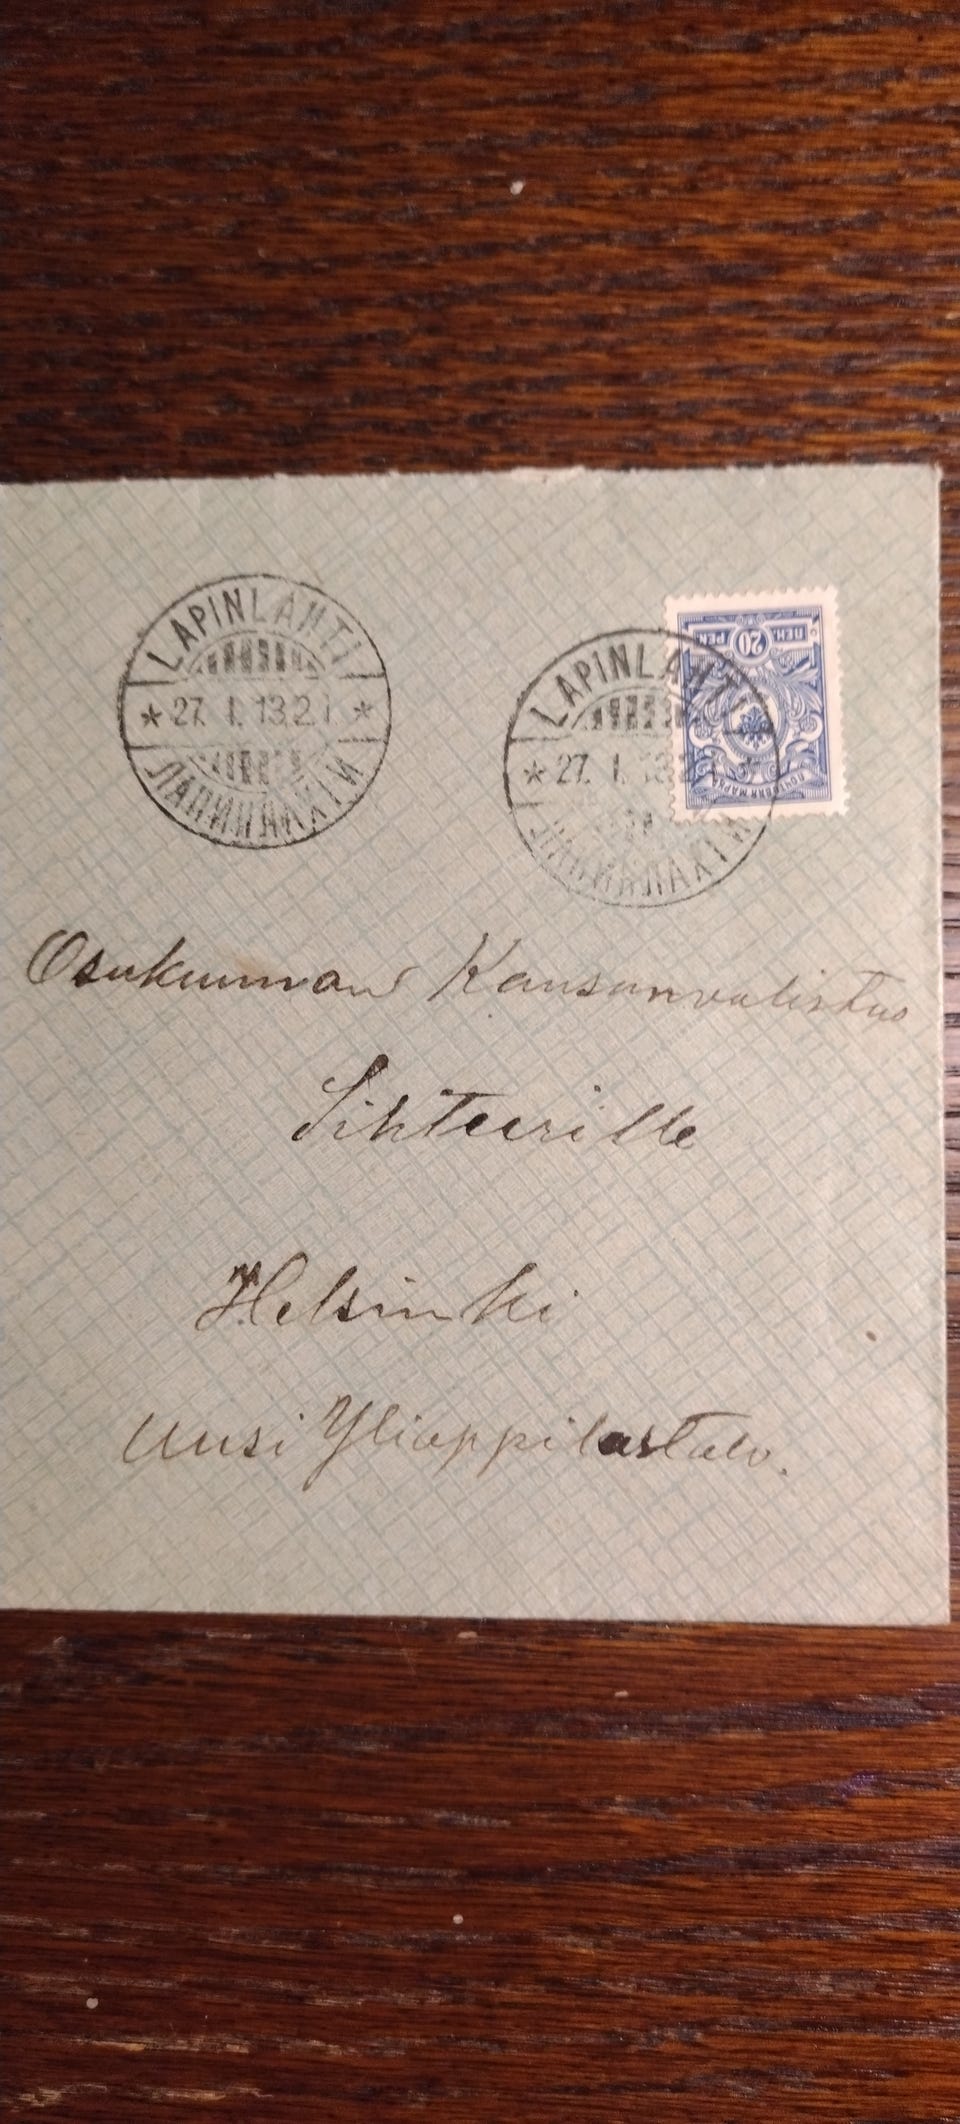 LAPINLAHTI
* 27. I. 13.2 I. *
ЛАПИНЛАХТИ
LAPINLAHTI
* 27. I. 13.2
ЛАПИНЛАХТИ
20 PEN. 20 ПЕН.
ПОЧТОВАЯ МАРКА
Osakunnan Kansanvalistus
Sihteerille
Helsinki
Uusi Ylioppilastalo.